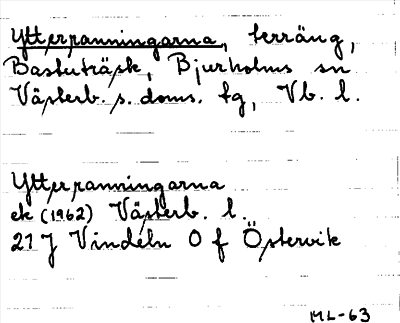 Ytterranningarna, terräng,
Bastuträsk, Bjurholms sn
Västerb. s. doms. tg, Vb. l.
Ytterranningarna
ek (1962) Västerb. l.
21 J Vindeln 0 f Östervik
ML-63